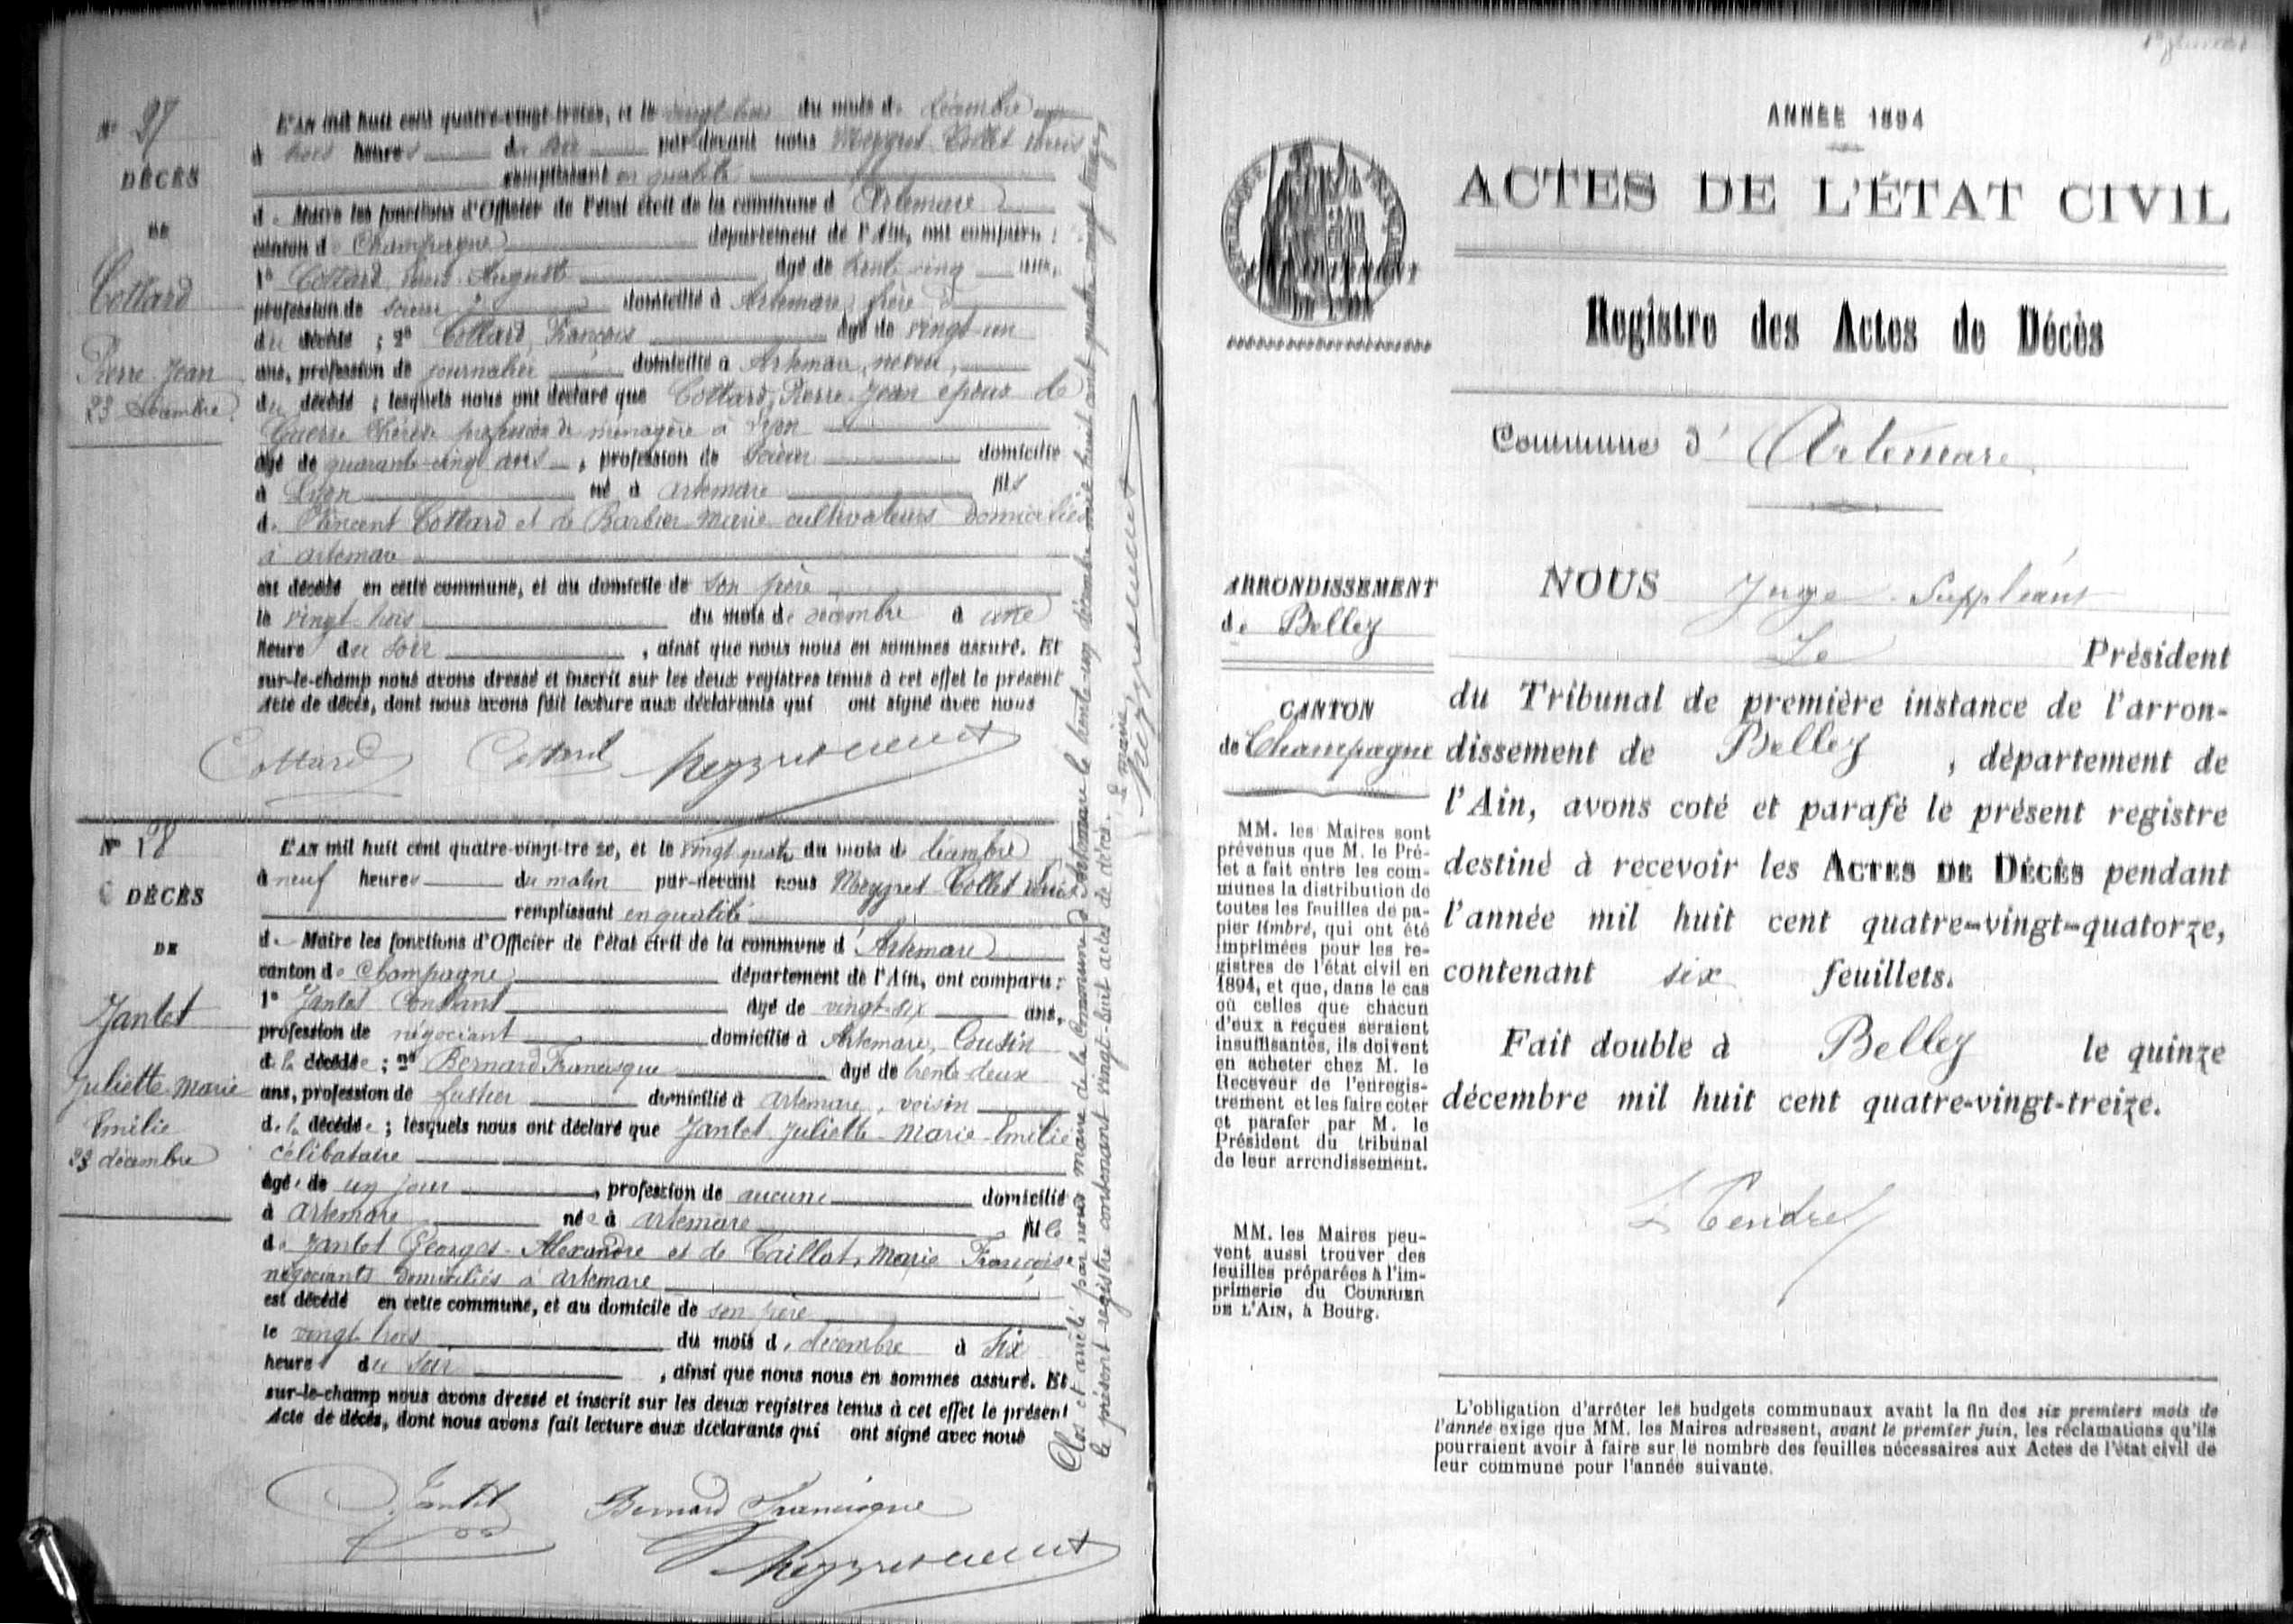 N° 27
DÉCÈS
DE
Cottard
Pierre Jean
23 décembre
L'AN mil huit cent quatre-vingt-treize, et le vingt trois du mois de décembre
à trois heures du soir par-devant nous Meygret-Collet
remplissant en qualité
de Maire les fonctions d'Officier de l'état civil de la commune d'Artemare
canton de Champagne département de l'Ain, ont comparu :
1° Cottard August âgé de trente cinq ans,
profession de scieur domicilié à Artemare, frère
du décédé ; 2° Cottard, François âgé de vingt-un
ans, profession de journalier domicilié à Artemare, neveu,
du décédé ; lesquels nous ont déclaré que Cottard, Pierre Jean époux de
Guerre Thérèse profession de menagère à Lyon
âgé de quarante cinq ans, profession de scieur domicilié
à Lyon né à artemare fils
de Vincent Cottard et de Barbier Marie cultivateurs domiciliés
à artemare
est décédé en cette commune, et au domicile de son père
le vingt-trois du mois de décembre à une
heure du soir, ainsi que nous nous en sommes assuré. Et
sur-le-champ nous avons dressé et inscrit sur les deux registres tenus à cet effet le présent
Acte de décès, dont nous avons fait lecture aux déclarants qui ont signé avec nous
Cottard Cottard
N° 28
DÉCÈS
DE
Jantet
Juliette-Marie
Emilie
23 décembre
L'AN mil huit cent quatre-vingt-treize, et le vingt quatre du mois de décembre
à neuf heures du matin par-devant nous Meygret-Collet
remplissant en qualité
de Maire les fonctions d'Officier de l'état civil de la commune d'Artemare
canton de Champagne département de l'Ain, ont comparu :
1° Jantet Constant âgé de vingt-six ans,
profession de négociant domicilié à Artemare, Cousin
de la décédée ; 2° Bernard Francisque âgé de trente-deux
ans, profession de domicilié à artemare, voisin
de la décédée ; lesquels nous ont déclaré que Jantet Juliette-Marie-Emilie
célibataire
âgée de un jour, profession de aucune domicilié
à Artemare née à artemare fille
de Jantet Georges-Alexandre et de Caillat, Marie Françoise
négociants domiciliés à artemare
est décédé en cette commune, et au domicile de son père
le vingt trois du mois de décembre à six
heures du soir, ainsi que nous nous en sommes assuré. Et
sur-le-champ nous avons dressé et inscrit sur les deux registres tenus à cet effet le présent
Acte de décès, dont nous avons fait lecture aux déclarants qui ont signé avec nous
Jantet Bernard Francisque
Clos et arrêté par nous maire de la Commune d'Artemare le trente-un décembre mil huit cent quatre-vingt treize
le présent registre contenant vingt-huit actes de décès. Le maire
ANNÉE 1894
ACTES DE L'ÉTAT CIVIL
RÉPUBLIQUE FRANÇAISE
Registre des Actes de Décès
Commune d'Artemare
ARRONDISSEMENT
de Belley
CANTON
de Champagne
MM. les Maires sont
prévenus que M. le Pré-
fet a fait entre les com-
munes la distribution de
toutes les feuilles de pa-
pier timbré, qui ont été
imprimées pour les re-
gistres de l'état civil en
1894, et que, dans le cas
où celles que chacun
d'eux a reçues seraient
insuffisantes, ils doivent
en acheter chez M. le
Receveur de l'enregis-
trement et les faire coter
et parafer par M. le
Président du tribunal
de leur arrondissement.
MM. les Maires peu-
vent aussi trouver des
feuilles préparées à l'im-
primerie du COURRIER
DE L'AIN, à Bourg.
NOUS Juge Suppléant
Le Président
du Tribunal de première instance de l'arron-
dissement de Belley, département de
l'Ain, avons coté et parafé le présent registre
destiné à recevoir les ACTES DE DÉCÈS pendant
l'année mil huit cent quatre-vingt-quatorze,
contenant six feuillets.
Fait double à Belley le quinze
décembre mil huit cent quatre-vingt-treize.
L'obligation d'arrêter les budgets communaux avant la fin des six premiers mois de
l'année exige que MM. les Maires adressent, avant le premier juin, les réclamations qu'ils
pourraient avoir à faire sur le nombre des feuilles nécessaires aux Actes de l'état civil de
leur commune pour l'année suivante.